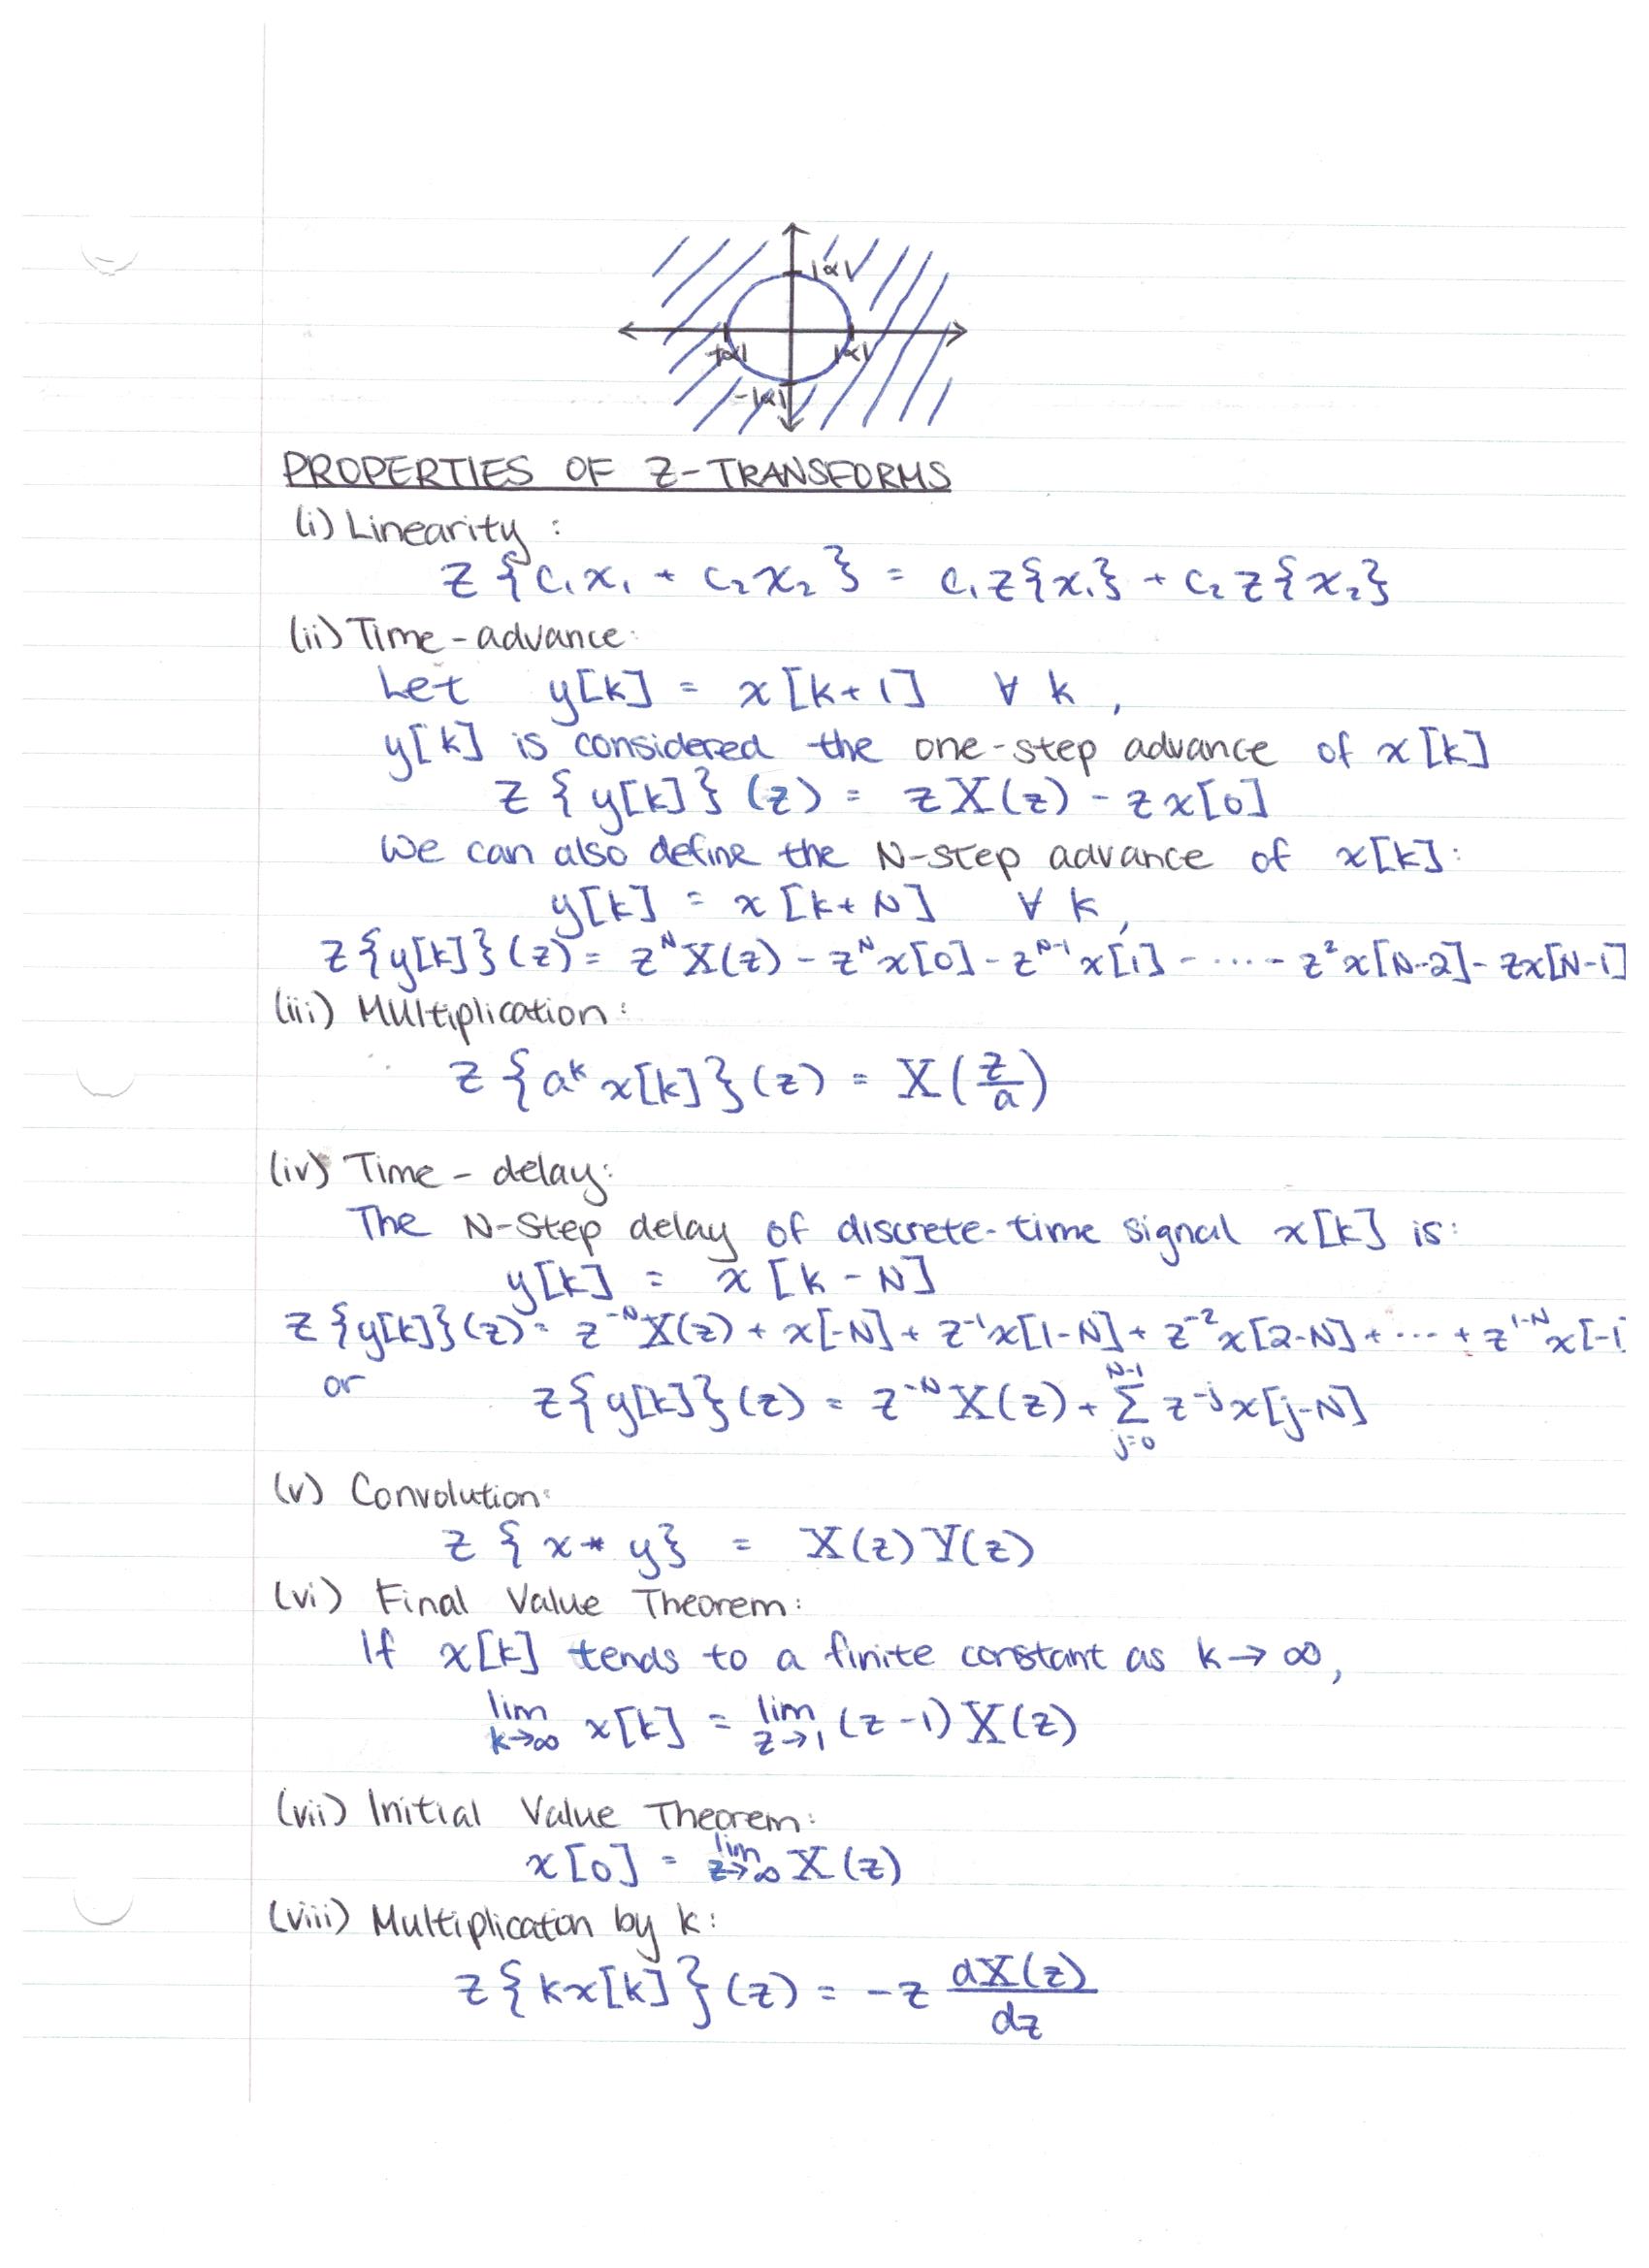 |α|
-|α| |α|
-|α|
PROPERTIES OF Z-TRANSFORMS
(i) Linearity :
Z {c₁x₁ + c₂x₂} = c₁Z{x₁} + c₂Z{x₂}
(ii) Time-advance:
Let y[k] = x[k+1] ∀ k,
y[k] is considered the one-step advance of x[k]
Z {y[k]}(z) = zX(z) - zx[0]
We can also define the N-step advance of x[k]:
y[k] = x[k+N] ∀ k,
Z{y[k]}(z) = z^N X(z) - z^N x[0] - z^(N-1) x[1] - ..... - z²x[N-2] - zx[N-1]
(iii) Multiplication:
Z {a^k x[k]}(z) = X(z/a)
(iv) Time-delay:
The N-Step delay of discrete-time signal x[k] is:
y[k] = x[k-N]
Z{y[k]}(z) = z^(-N) X(z) + x[-N] + z^(-1) x[1-N] + z^(-2) x[2-N] + ... + z^(1-N) x[-1
or Z{y[k]}(z) = z^(-N) X(z) + Σ_(j=0)^(N-1) z^(-j) x[j-N]
(v) Convolution:
Z {x * y} = X(z)Y(z)
(vi) Final Value Theorem:
If x[k] tends to a finite constant as k→∞,
lim_(k→∞) x[k] = lim_(z→1) (z-1)X(z)
(vii) Initial Value Theorem:
x[0] = lim_(z→∞) X(z)
(viii) Multiplicaton by k:
Z{kx[k]}(z) = -z dX(z)/dz